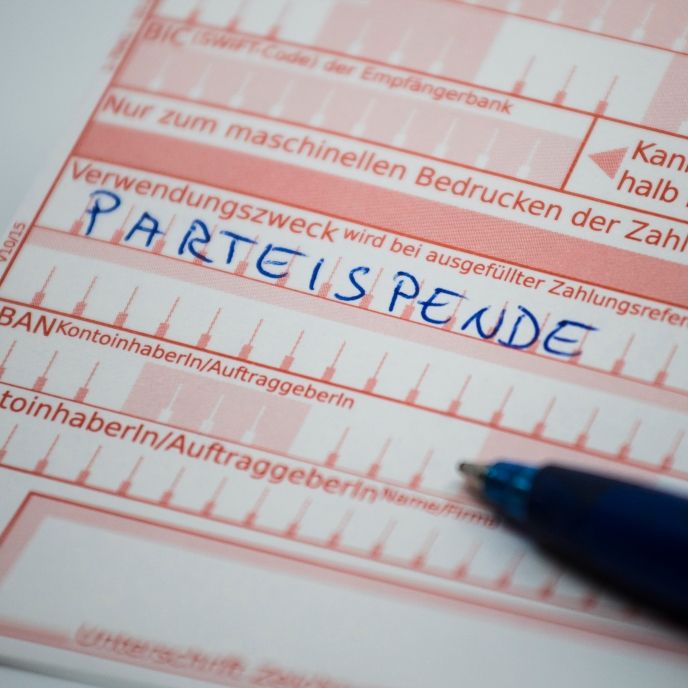 BIC (SWIFT-Code) der Empfängerbank
Kann
halb
Nur zum maschinellen Bedrucken der Zahl
Verwendungszweck wird bei ausgefüllter Zahlungsrefer
PARTEISPENDE
V10/15
BAN KontoinhaberIn/AuftraggeberIn
toinhaberIn/AuftraggeberIn Name/Firma
Unterschrift